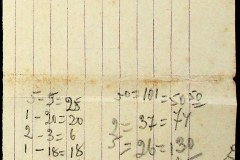 5 - 5 = 25
1 - 20 = 20
2 - 3 = 6
1 - 18 = 18
50 = 101 = 5050
2 = 37 = 74
5 = 26 = 130